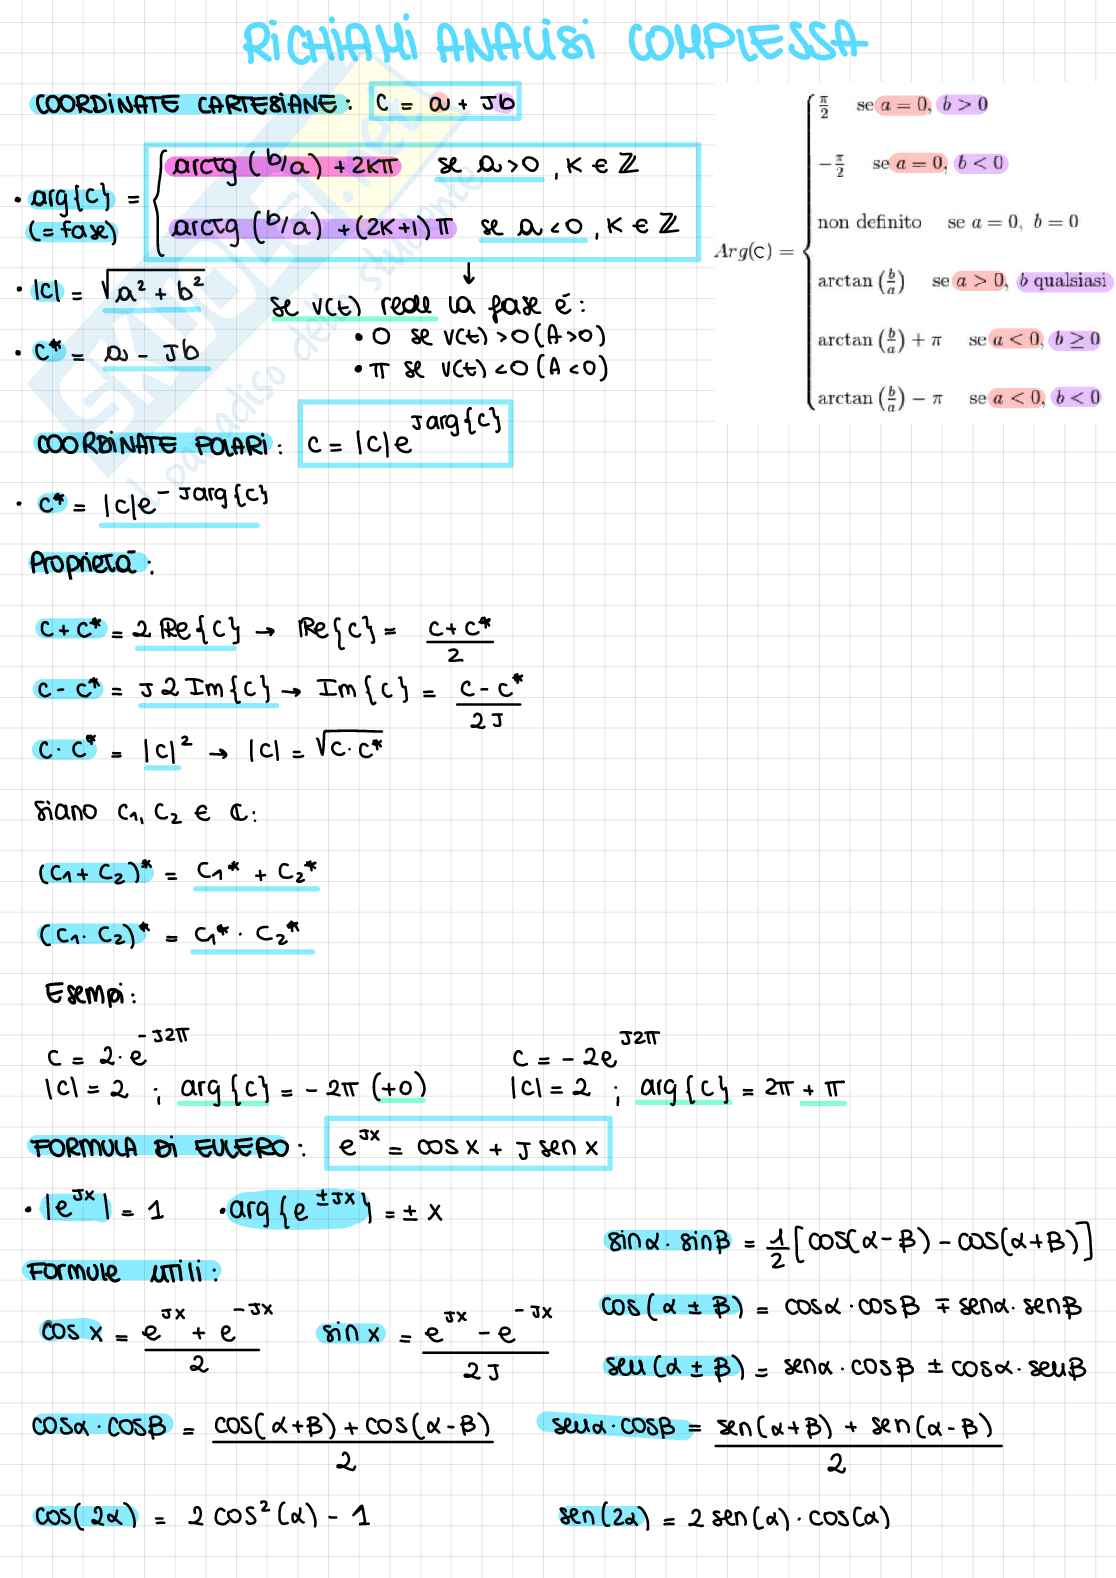 RICHIAMI ANALISI COMPLESSA
COORDINATE CARTESIANE: C = a + Jb
• arg{C} = { arctg (b/a) + 2Kπ se a > 0, K ∈ ℤ
(= fase) arctg (b/a) + (2K+1) π se a < 0, K ∈ ℤ
↓
• |C| = √(a² + b²)
se v(t) reale la fase è:
• 0 se v(t) > 0 (A > 0)
• π se v(t) < 0 (A < 0)
• C* = a - Jb
Arg(C) = { π/2 se a = 0, b > 0
-π/2 se a = 0, b < 0
non definito se a = 0, b = 0
arctan (b/a) se a > 0, b qualsiasi
arctan (b/a) + π se a < 0, b ≥ 0
arctan (b/a) − π se a < 0, b < 0
COORDINATE POLARI: C = |C| e^{J arg{C}}
• C* = |C| e^{-J arg{C}}
Proprietà:
C + C* = 2 Re{C} → Re{C} = (C + C*)/2
C - C* = J 2 Im{C} → Im{C} = (C - C*)/2J
C · C* = |C|² → |C| = √(C · C*)
Siano C₁, C₂ ∈ ℂ:
(C₁ + C₂)* = C₁* + C₂*
(C₁ · C₂)* = C₁* · C₂*
Esempi:
C = 2 · e^{-J2π} C = - 2e^{J2π}
|C| = 2 ; arg{C} = - 2π (+0) |C| = 2 ; arg{C} = 2π + π
FORMULA DI EULERO: e^{Jx} = cos x + J sen x
• |e^{Jx}| = 1 • arg{e^{±Jx}} = ± x
sinα · sinβ = 1/2 [cos(α - β) - cos(α + β)]
Formule utili:
cos(α ± β) = cosα · cosβ ∓ senα · senβ
cos x = (e^{Jx} + e^{-Jx})/2 sin x = (e^{Jx} - e^{-Jx})/2J
sen(α ± β) = senα · cosβ ± cosα · senβ
cosα · cosβ = (cos(α + β) + cos(α - β))/2 senα · cosβ = (sen(α + β) + sen(α - β))/2
cos(2α) = 2 cos²(α) - 1 sen(2α) = 2 sen(α) · cos(α)
SKUOLA.net
il paradiso dello studente